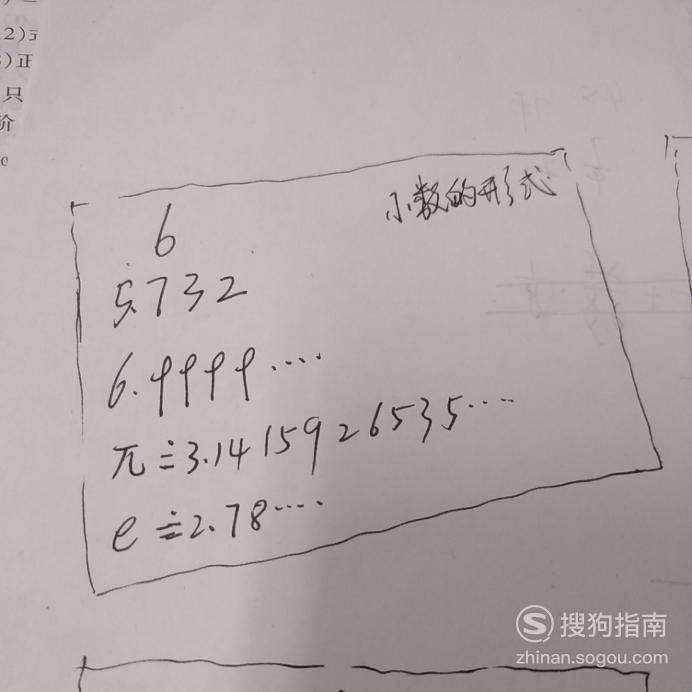 2)
)正
只
价
小数的形式
6
5.732
6.9999....
π≐3.1415926535...
e≐2.78....
搜狗指南
zhinan.sogou.com